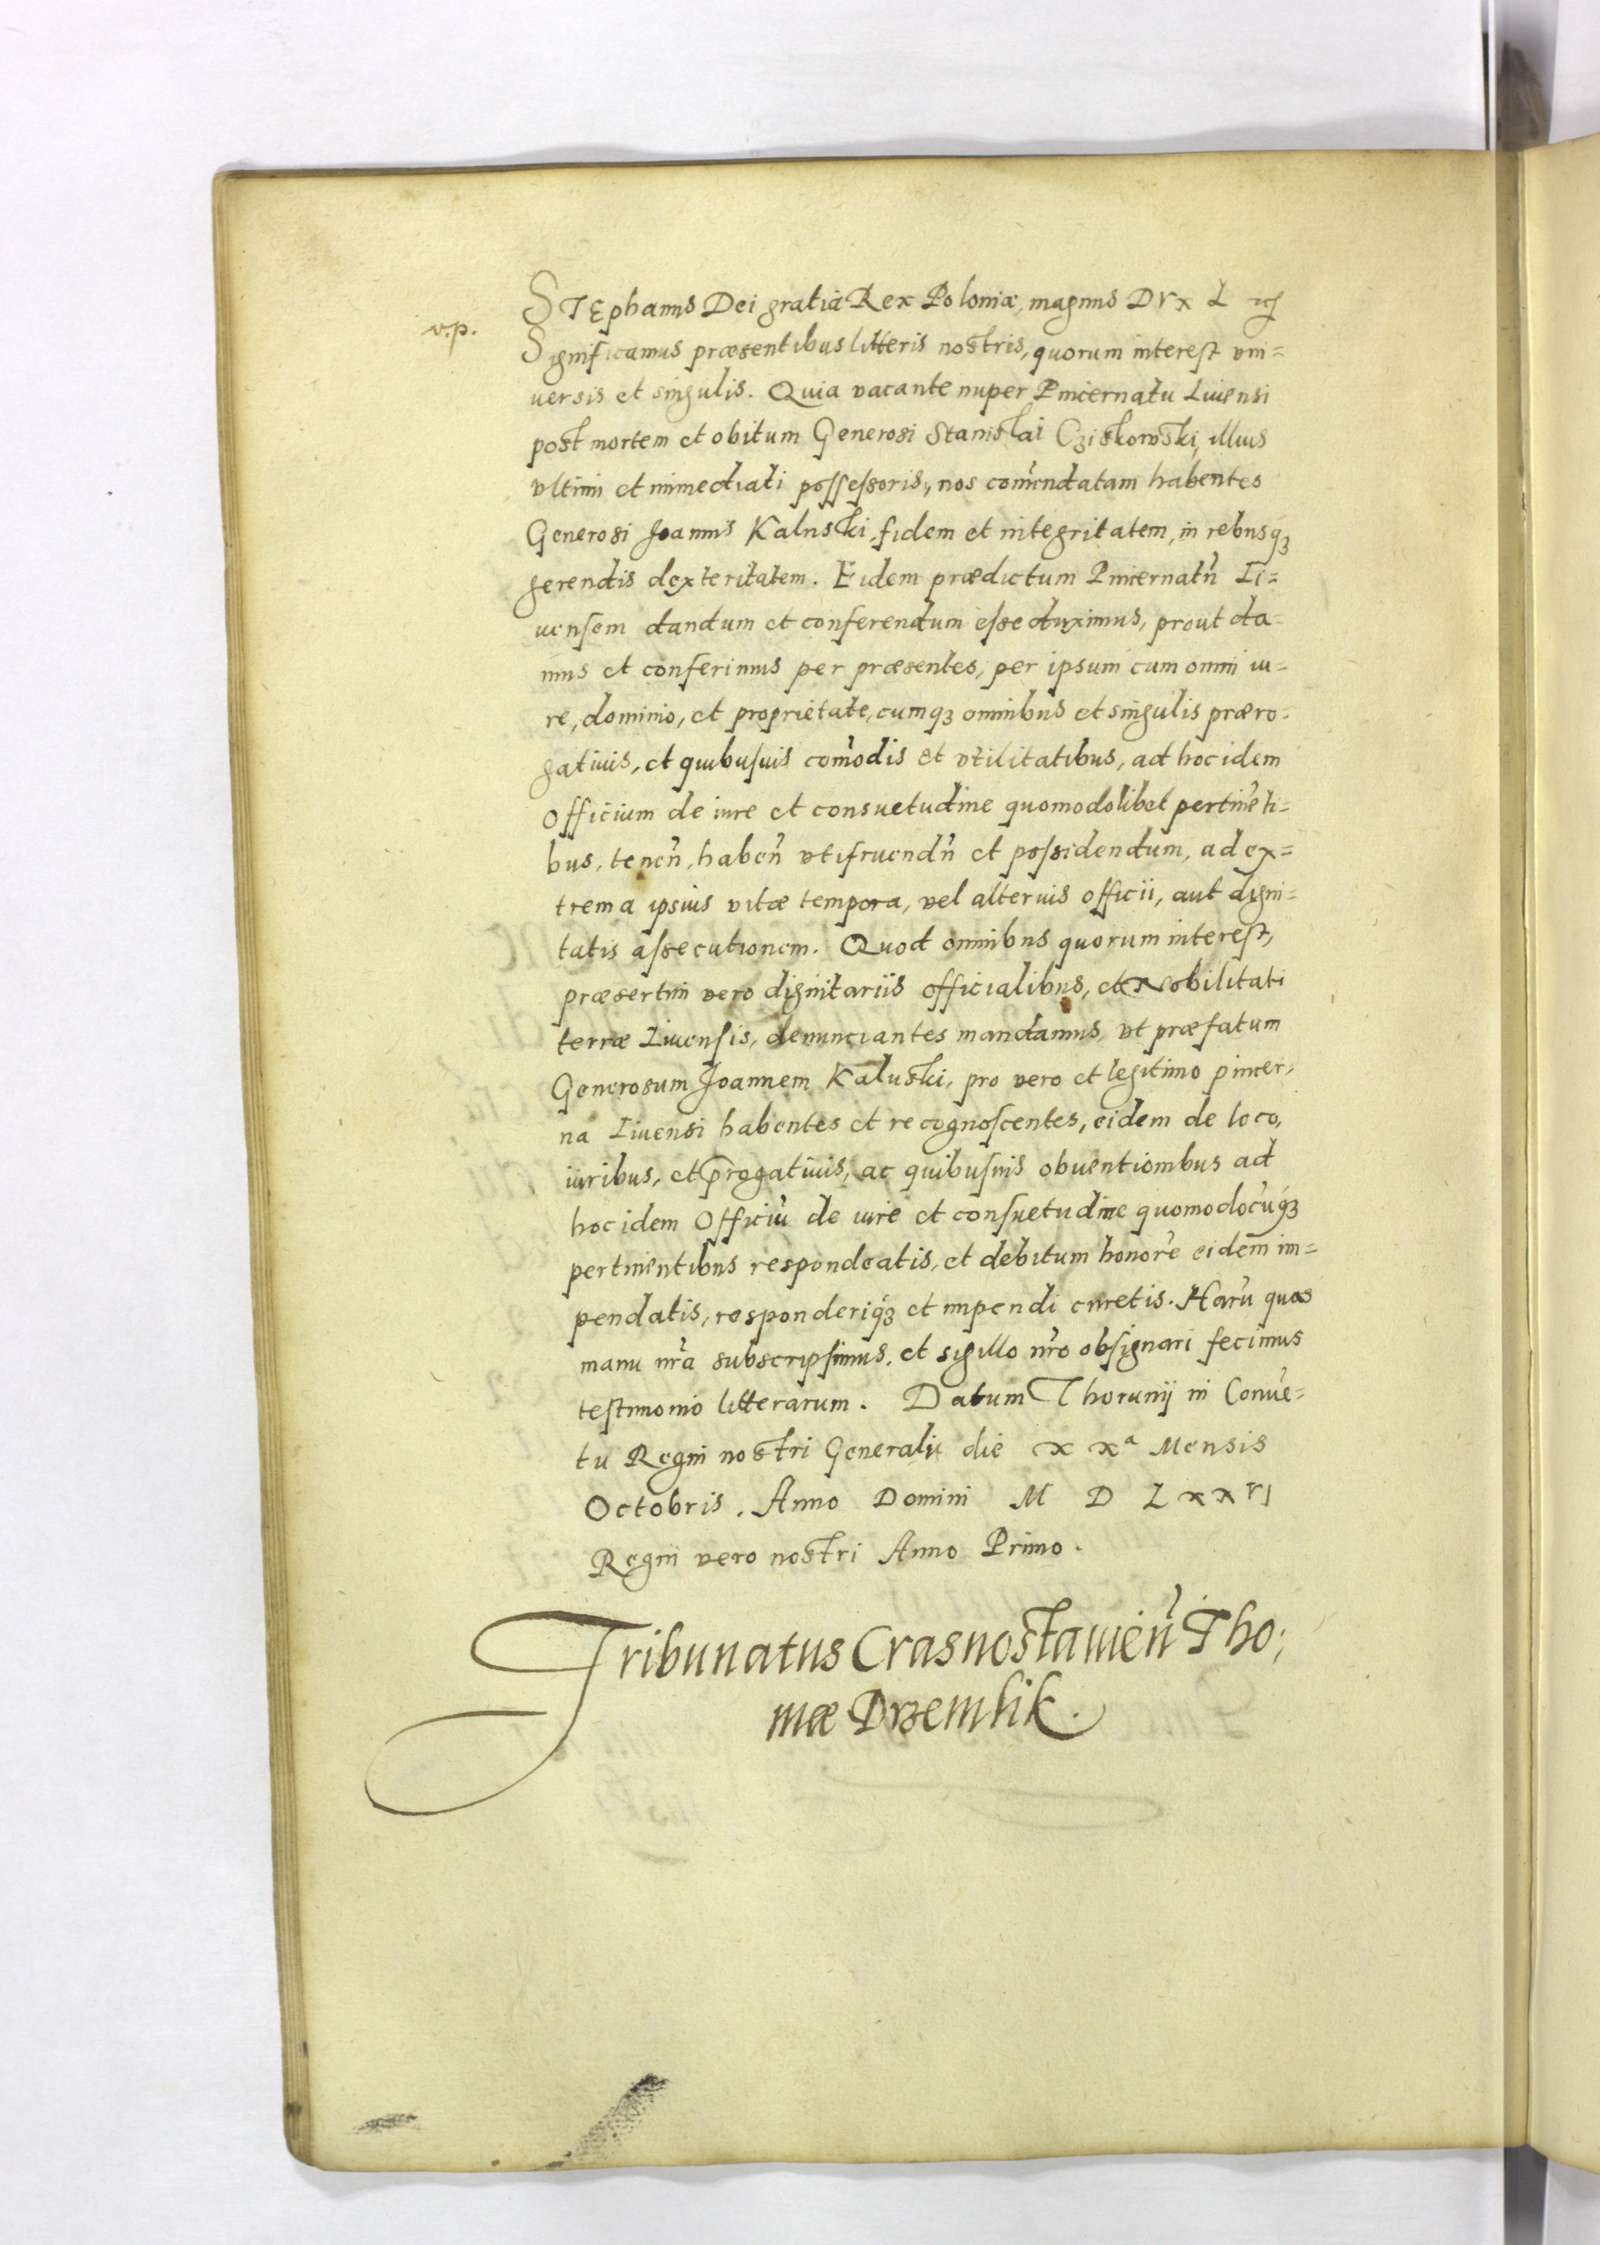 v.p.
STEphanus Dei gratia Rex Poloniæ, magnus DVx L
Significamus præsentibus litteris nostris, quorum interest vni=
uersis et singulis. Quia vacante nuper Pincernatu Liuensi
post mortem et obitum Generosi Stanislai Cziskowski, illius
vltimi et immediati possessoris, nos com̃endatam habentes
Generosi Joannis Kaluski, fidem et integritatem, in rebusqȝ
gerendis dexteritatem. Eidem prædictum Pincernatũ Li=
uensem dandum et conferendum esse duximus, prout da=
mus et conferimus per præsentes, per ipsum cum omni iu=
re, dominio, et proprietate, cumqȝ omnibus et singulis præro=
gatiuis, et quibusuis com̃odis et vtilitatibus, ad hoc idem
officium de iure et consuetudine quomodolibet pertinẽti=
bus, tenen̄, haben̄ vtifruendn̄ et possidendum, ad ex=
trema ipsius vitæ tempora, vel alterius officii, aut digni=
tatis assecutionem. Quod omnibus quorum interest,
præsertim vero dignitariis officialibus, et Nobilitati
terræ Liuensis, denunciantes mandamus, vt præfatum
Generosum Joannem Kaluski, pro vero et legitimo pincer=
na Liuensi habentes et recognoscentes, eidem de loco,
iuribus, et p̄rogatiuis, ac quibusuis obuentionibus ad
hoc idem Officiũ de iure et consuetudine quomodocũqȝ
pertinentibus respondeatis, et debitum honorẽ eidem im=
pendatis, responderiqȝ et impendi curetis. Harũ quas
manu nr̃a subscripsimus, et sigillo nr̃o obsignari fecimus
testimonio litterarum. Datum Thorunij in Conuẽ=
tu Regni nostri Generali die xxª Mensis
Octobris. Anno Domini M D LxxVI
Regni vero nostri Anno Primo.
Tribunatus Crasnostauien̄ Tho=
mæ Drzemlik.